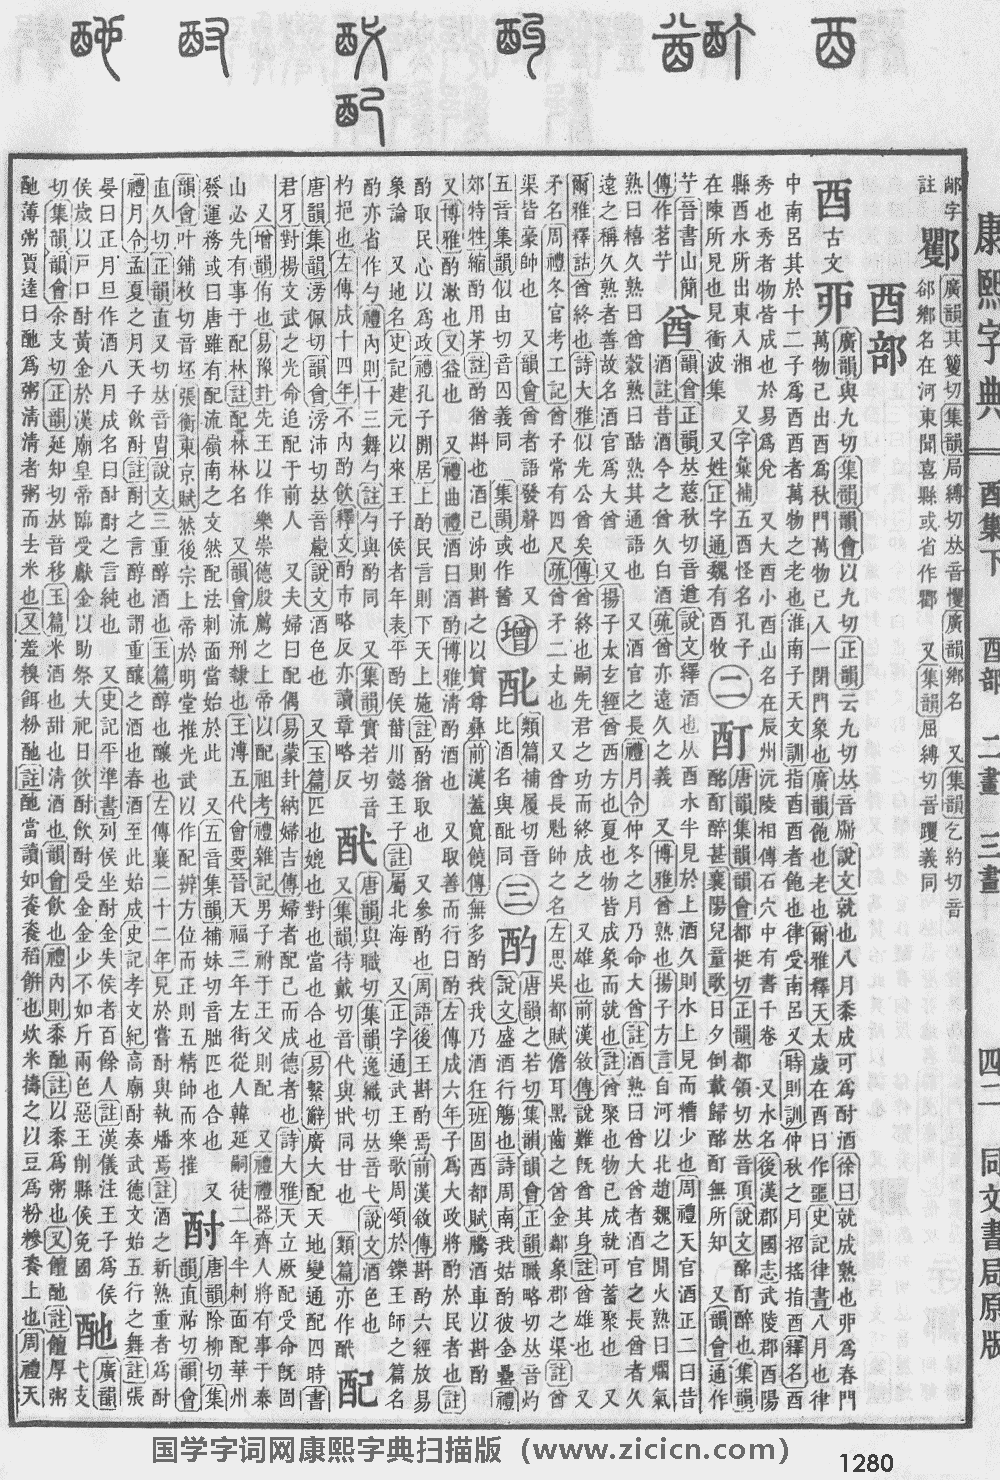 酉 酊 酋 酌 配 酎 酏
康熙字典 酉集下 酉部 二畫 三畫 四二 同文書局原版
鄅字
註 䣤 廣韻其籰切集韻局縛切𠀤音戄廣韻鄉名 又集韻乞約切音
郤鄉名在河東聞喜縣或省作㔃 又集韻屈縛切音躩義同
酉部
酉 古文 丣 廣韻與九切集韻韻會以九切正韻云九切𠀤音牖說文就也八月黍成可為酎酒徐曰就成熟也丣為春門
萬物已出酉為秋門萬物已入一閉門象也廣韻飽也老也爾雅釋天太歲在酉曰作噩史記律書八月也律
中南呂其於十二子為酉酉者萬物之老也淮南子天文訓指酉酉者飽也律受南呂又時則訓仲秋之月招搖指酉釋名酉
秀也秀者物皆成也於易為兌 又大酉小酉山名在辰州沅陵相傳石穴中有書千卷 又水名後漢郡國志武陵郡酉陽
縣酉水所出東入湘 又字彙補五酉怪名孔子
在陳所見也見衝波集 又姓正字通魏有酉牧 二 酊 唐韻集韻韻會都挺切正韻都領切𠀤音頂說文酩酊醉也集韻
酩酊醉甚襄陽兒童歌日夕倒載歸酩酊無所知 又韻會通作
艼晉書山簡
傳作茗艼 酋 韻會正韻𠀤慈秋切音遒說文繹酒也从酉水半見於上酒久則水上見而糟少也周禮天官酒正二曰昔
酒註昔酒今之酋久白酒疏酋亦遠久之義 又博雅酋熟也揚子方言自河以北趙魏之閒火熟曰爛氣
熟曰𥻨久熟曰酋穀熟曰酷熟其通語也 又酒官之長禮月令仲冬之月乃命大酋註酒熟曰酋大酋者酒官之長酋者久
遠之稱久熟者善故名酒官為大酋 又揚子太玄經酋西方也夏也物皆成𧰼而就也註酋聚也物已成就可蓄聚也 又
爾雅釋詁酋終也詩大雅似先公酋矣傳酋終也嗣先君之功而終成之 又雄也前漢敘傳說難旣酋其身註酋雄也 又
矛名周禮冬官考工記酋矛常有四尺疏酋矛二丈也 又酋長魁帥之名左思吳都賦儋耳黑齒之酋金鄰象郡之渠註酋
渠皆豪帥也 又韻會酋者語發聲也 又
五音集韻似由切音囚義同 集韻或作䣣 增 𨠔 類篇補履切音
比酒名與𨠔同 三 酌 唐韻之若切集韻韻會正韻職略切𠀤音灼
說文盛酒行觴也詩周南我姑酌彼金罍禮
郊特牲縮酌用茅註酌猶斟也酒已泲則斟之以實尊彝前漢蓋寬饒傳無多酌我我乃酒狂班固西都賦騰酒車以斟酌
又博雅酌漱也 又益也 又禮曲禮酒曰清酌博雅清酌酒也 又取善而行曰酌左傳成六年子為大政將酌於民者也註
酌取民心以為政禮孔子閒居上酌民言則下天上施註酌猶取也 又參酌也周語後王斟酌焉前漢敘傳斟酌六經放易
象論 又地名史記建元以來王子侯者年表平酌侯菑川懿王子註屬北海 又正字通武王樂歌周頌於鑠王師之篇名
酌亦省作勺禮內則十三舞勺註勺與酌同 又集韻實若切音
杓挹也左傳成十四年不內酌飮釋文酌市略反亦讀章略反 酖 唐韻與職切集韻逸織切𠀤音弋說文酒色也
又集韻待戴切音代與𨠓同甘也 類篇亦作𨠑 配
唐韻集韻滂佩切韻會滂沛切𠀤音嶏說文酒色也 又玉篇匹也媲也對也當也合也易繫辭廣大配天地變通配四時書
君牙對揚文武之光命追配于前人 又夫婦曰配偶易蒙卦納婦吉傳婦者配己而成德者也詩大雅天立厥配受命旣固
又增韻侑也易豫卦先王以作樂崇德殷薦之上帝以配祖考禮雜記男子祔于王父則配 又禮禮器齊人將有事于泰
山必先有事于配林註配林林名 又韻會流刑隸也王溥五代會要晉天福三年左街從人韓延嗣徒二年半刺面配華州
發運務或曰唐雖有配流嶺南之文然配法刺面當始於此 又五音集韻補妹切音朏匹也合也 又
韻會叶鋪枚切音坯張衡東京賦然後宗上帝於明堂推光武以作配辨方位而正則五精帥而來摧 酎 唐韻除柳切集
韻直祐切韻會
直久切正韻直又切𠀤音胄說文三重醇酒也玉篇醇也釀也左傳襄二十二年見於嘗酎與執燔焉註酒之新熟重者為酎
禮月令孟夏之月天子飮酎註酎之言醇也謂重釀之酒也春酒至此始成史記孝文紀高廟酎奏武德文始五行之舞註張
晏曰正月旦作酒八月成名曰酎酎之言純也 又史記平準書列侯坐酎金失侯者百餘人註漢儀注王子為侯
侯歲以戸口酎黃金於漢廟皇帝臨受獻金以助祭大祀日飮酎飮酎受金金少不如斤兩色惡王削縣侯免國 酏 廣韻
弋支
切集韻韻會余支切正韻延知切𠀤音移玉篇米酒也甜也清酒也韻會飮也禮內則黍酏註以黍為粥也又饘酏註饘厚粥
酏薄粥賈逵曰酏為粥清清者粥而去米也又羞糗餌粉酏註酏當讀如餈餈稻餠也炊米擣之以豆為粉糝餈上也周禮天
国学字词网康熙字典扫描版（www.zicicn.com）
1280